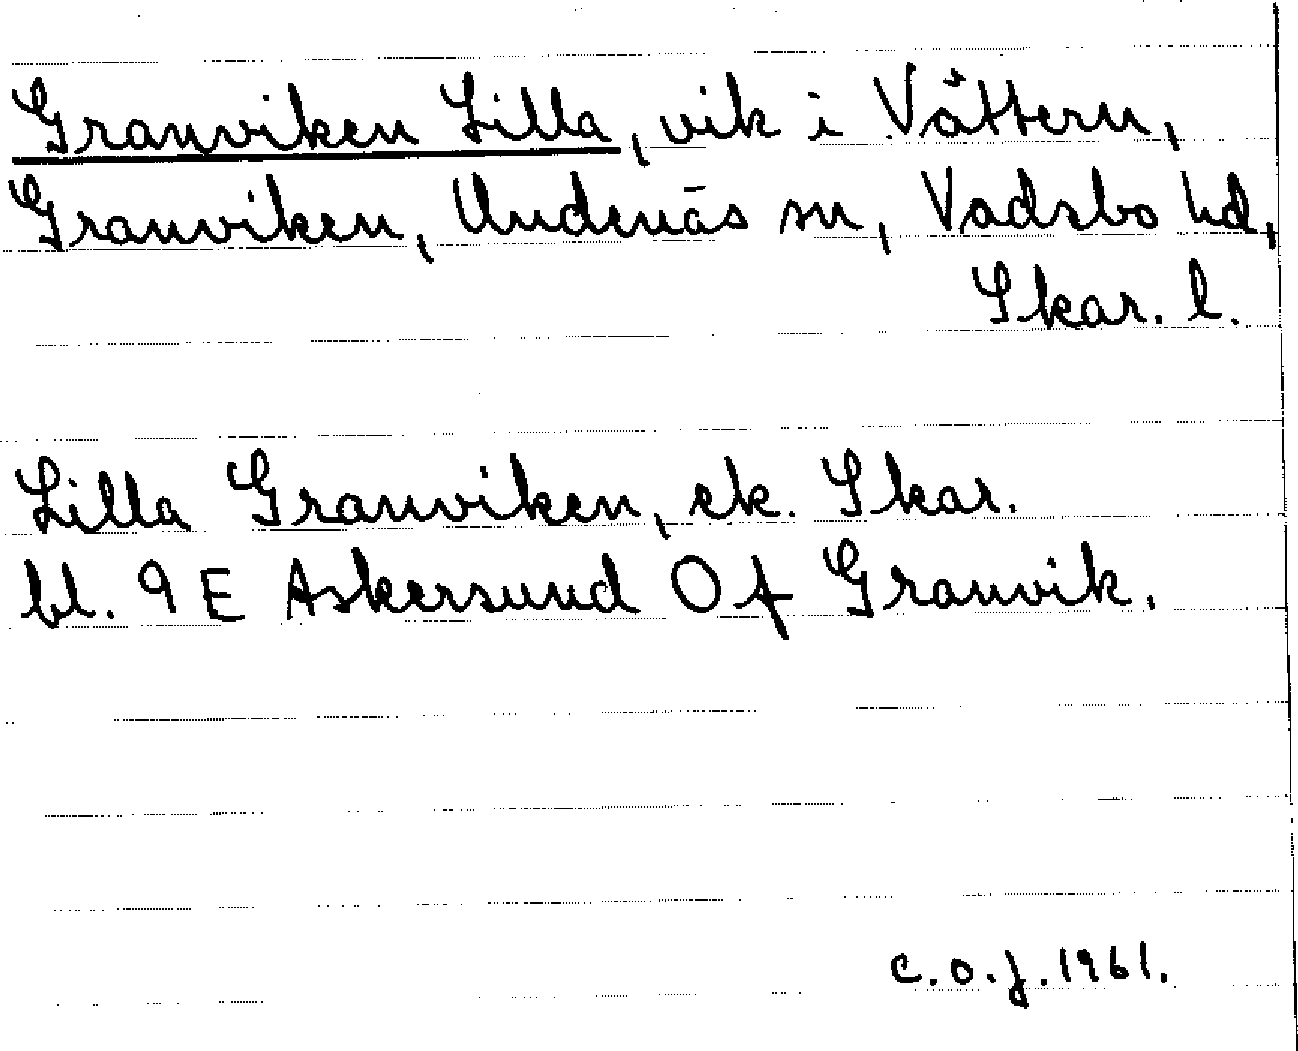 Granviken Lilla, vik i Vättern,
Granviken, Undenäs sn, Vadsbo hd,
Skar. l.
Lilla Granviken, ek. Skar.
bl. 9 E Askersund O f Granvik.
c.o.j. 1961.